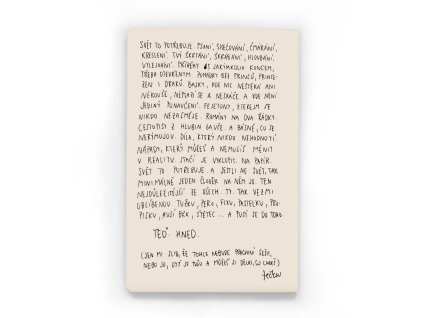 SVĚT TO POTŘEBUJE. PSANÍ, SKEČOVÁNÍ, ČMÁRÁNÍ,
KRESLENÍ. TVÍ ŠKRTÁNÍ, ŠKRÁBÁNÍ, HLOUBÁNÍ,
VYLEJVÁNÍ. PŘÍBĚHY S JAKÝMKOLIV KONCEM,
TŘEBA OTEVŘENÝM. POHÁDKY BEZ PRINCŮ, PRINCE-
ZEN I DRAKŮ. BAJKY, KDE NIC NEŠTĚKÁ ANI
NEKOUŠE, NEPLAZÍ SE A NESKÁČE A KDE NENÍ
JEDINÝ PONAUČENÍ. FEJETONY, KTEREJM SE
NIKDO NEZASMĚJE. ROMÁNY NA DVA ŘÁDKY.
CESTOPISY Z HLUBIN GAUČE. A BÁSNĚ, CO SE
NERÝMUJOU. DÍLA, KTERÝ NIKDO NEHODNOTÍ.
NÁPADA, KTERÝ MŮŽEŠ A NEMUSÍŠ MĚNIT
V REALITU. STAČÍ JE VYKLOPIT. NA PAPÍR.
SVĚT TO POTŘEBUJE. A JESTLI NE SVĚT, TAK
MINIMÁLNĚ JEDEN ČLOVĚK NA NĚM JO. TEN
NEJDŮLEŽITĚJŠÍ ZE VŠECH. TY. TAK VEZMI
OBLÍBENOU TUŽKU, PERO, FIXU, PASTELKU, PRO-
PISKU, HUSÍ BRK, ŠTĚTEC ... A PUSŤ SE DO TOHO.
TEĎ. HNED.
(JEN MI SLIB, ŽE TOHLE NEBUDE PRACOVNÍ SEŠIT,
NEBO JO, DYŤ JE TVŮJ A MŮŽEŠ SI DĚLAT, CO CHCEŠ)